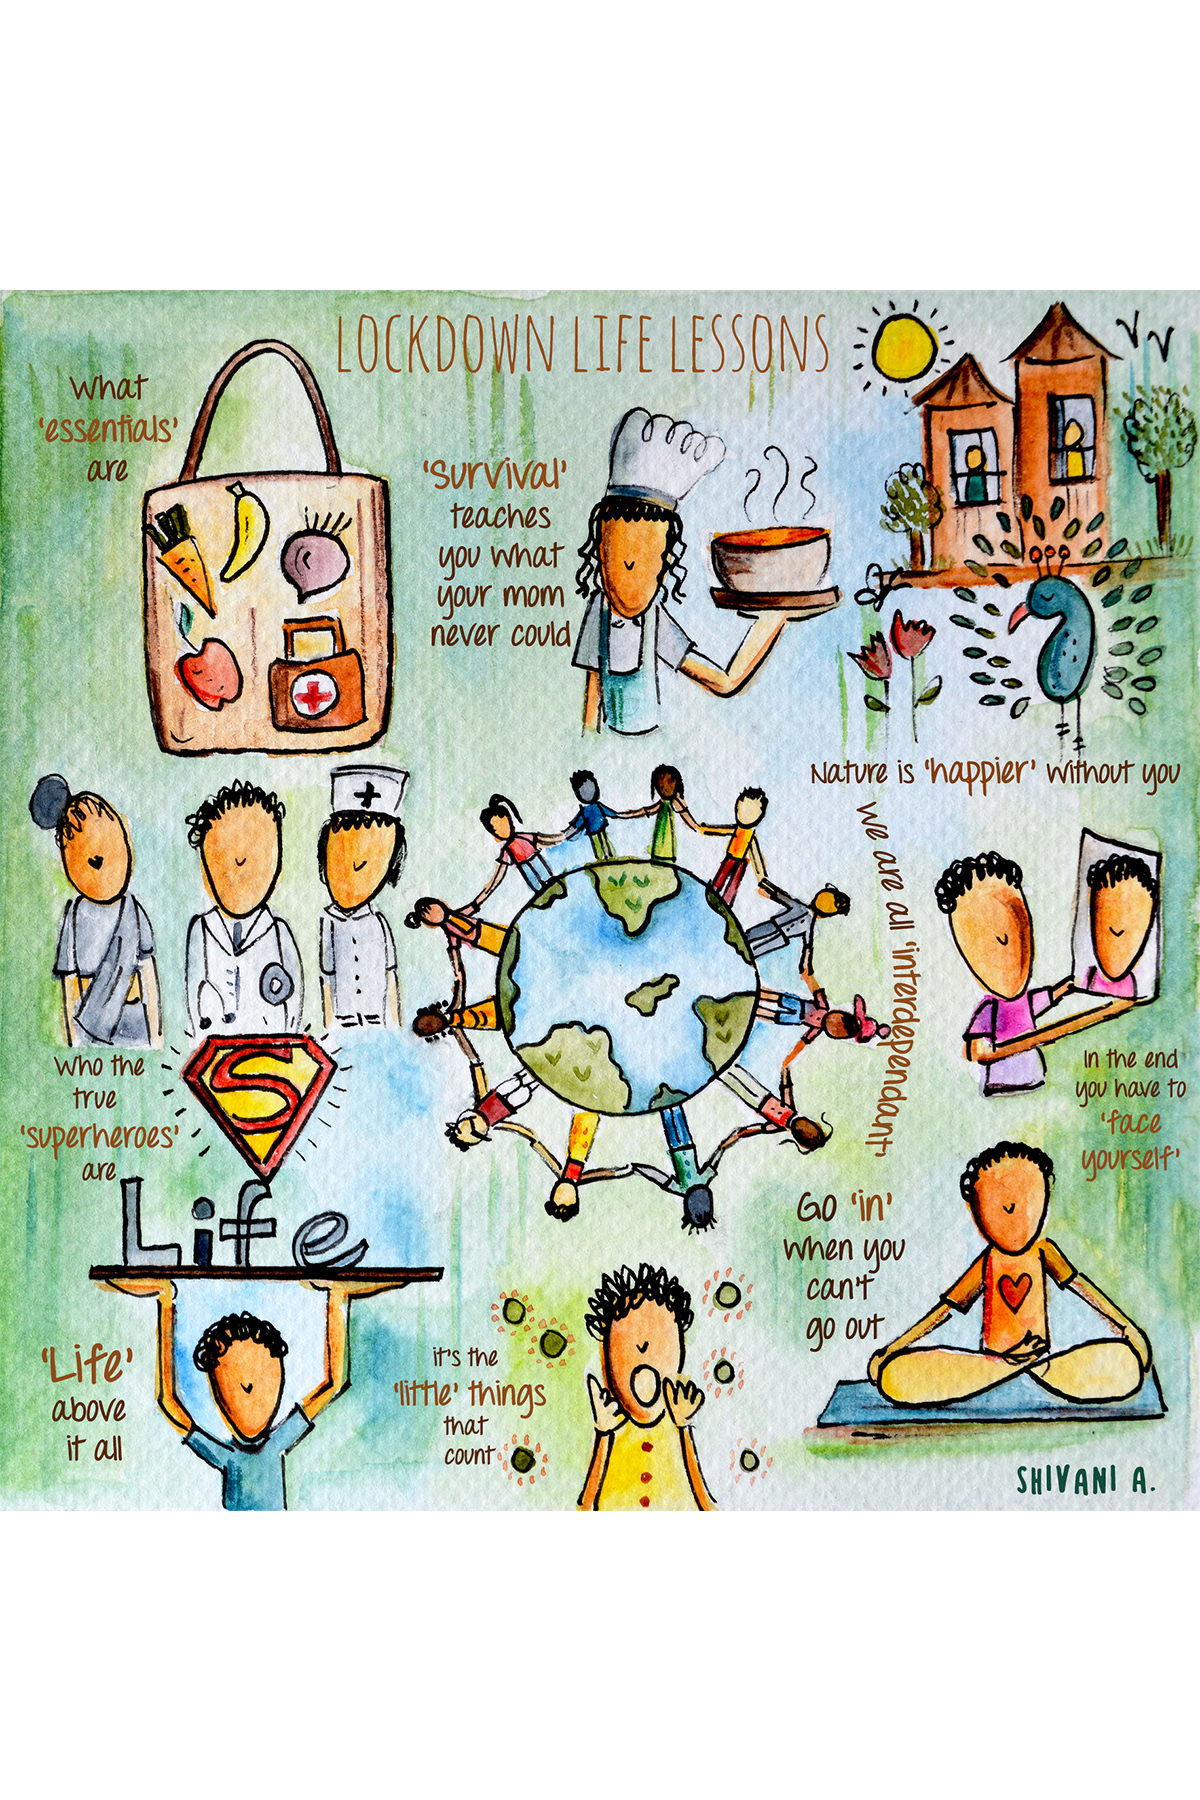 LOCKDOWN LIFE LESSONS
What
'essentials'
are
'Survival'
teaches
you what
your mom
never could
Nature is 'happier' without you
We are all 'interdependant'
Who the
true
'superheroes'
are
S
In the end
you have to
'face
yourself'
Life
'Life'
above
it all
it's the
'little' things
that
count
Go 'in'
when you
can't
go out
SHIVANI A.